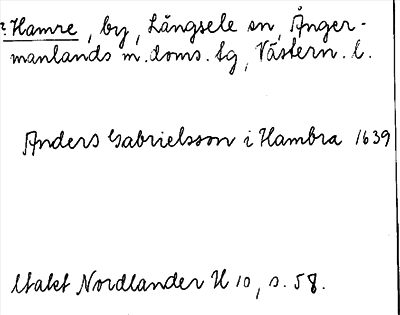 ? Hamre, by, Långsele sn, Ånger-
manlands m. doms. tg, Västern. l.
Anders Gabrielsson i Hambra 1639
Utakt Nordlander H 10, s. 58.